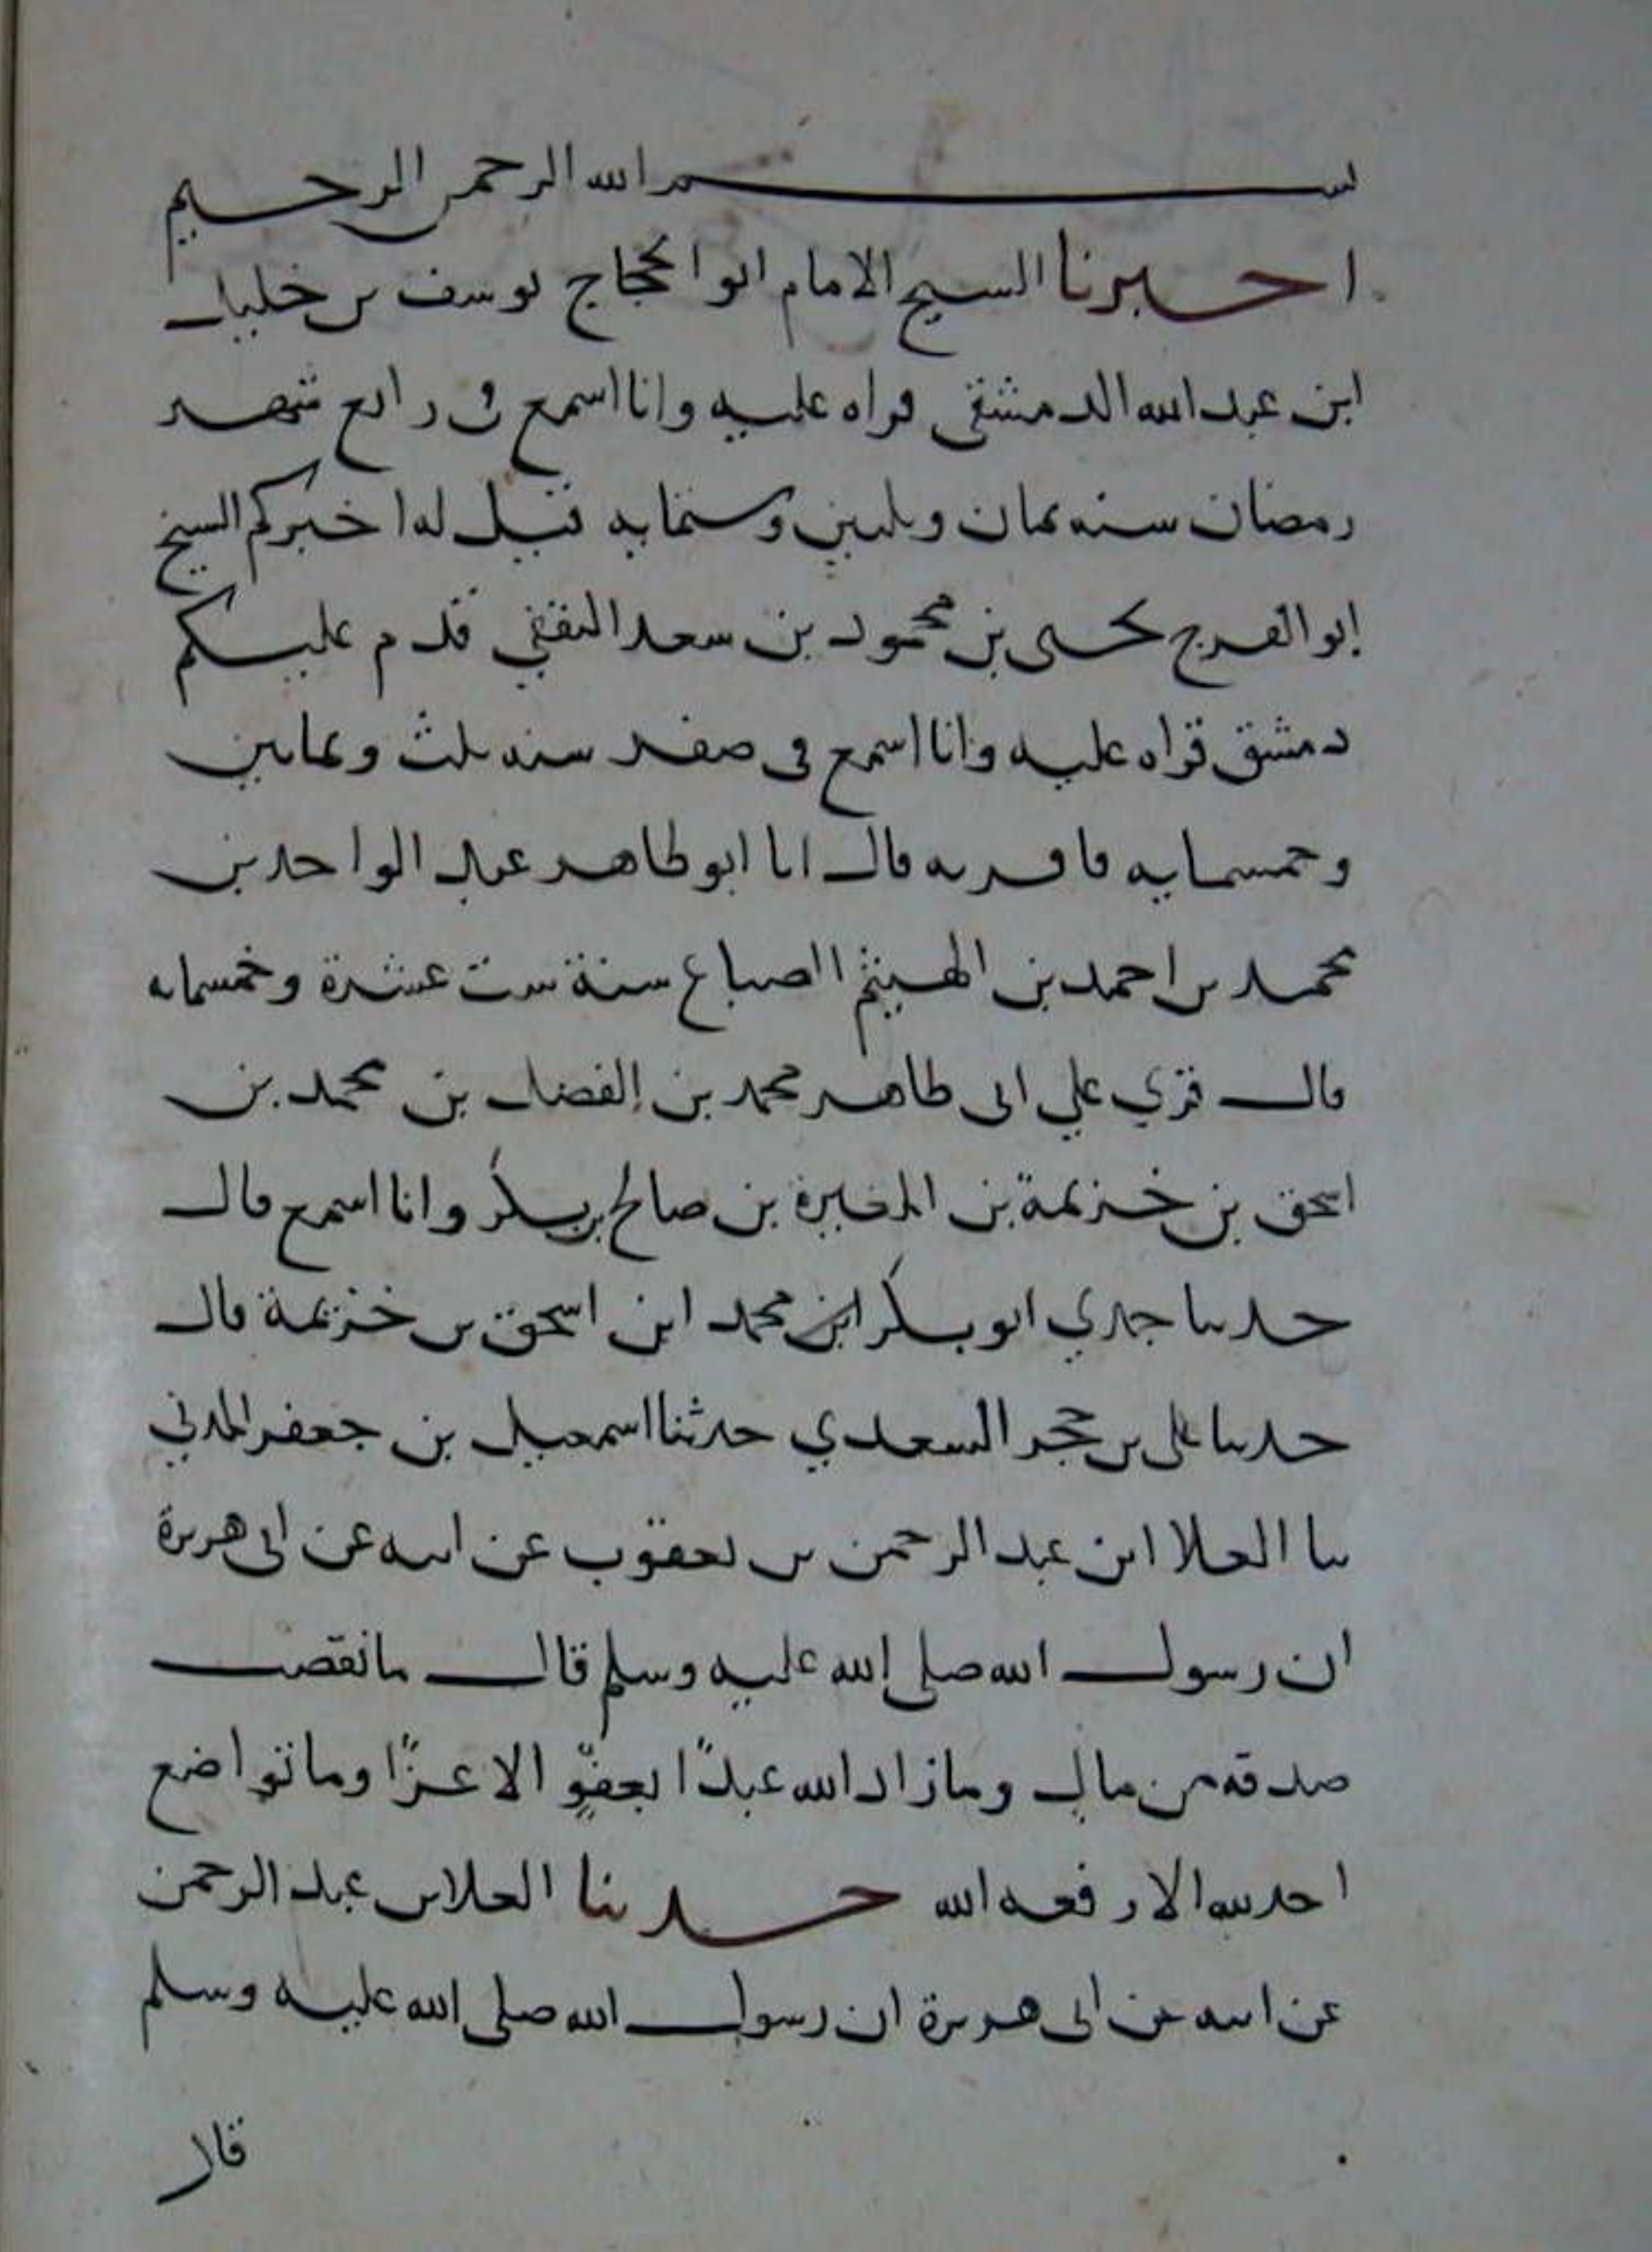 بسم الله الرحمن الرحيم
اخبرنا الشيخ الامام ابو الحجاج يوسف بن خليل
ابن عبد الله الدمشقي قراه عليه وانا اسمع في رابع شهر
رمضان سنه ثمان وثلثين وستمايه قيل له اخبركم الشيخ
ابو الفرج يحيى بن محمود بن سعد الثقفي قدم عليكم
دمشق قراه عليه وانا اسمع في صفر سنه ثلث وثمانين
وخمسمايه فاقر به قال انا ابو طاهر عبد الواحد بن
محمد بن احمد بن الهيثم الصباغ سنة ست عشرة وخمسمايه
قال قري علي ابي طاهر محمد بن الفضل بن محمد بن
اسحق بن خزيمة بن المغيرة بن صالح بن بكر وانا اسمع قال
حدثنا جدي ابو بكر محمد ابن اسحق بن خزيمة قال
حدثنا علي بن حجر السعدي حدثنا اسمعيل بن جعفر المدني
ثنا العلا ابن عبد الرحمن بن يعقوب عن ابيه عن ابي هريرة
ان رسول الله صلى الله عليه وسلم قال ما نقصت
صدقه من مال وما زاد الله عبدًا بعفوٍّ الا عزًا وما تواضع
احد لله الا رفعه الله حدثنا العلا بن عبد الرحمن
عن ابيه عن ابي هريرة ان رسول الله صلى الله عليه وسلم
قال